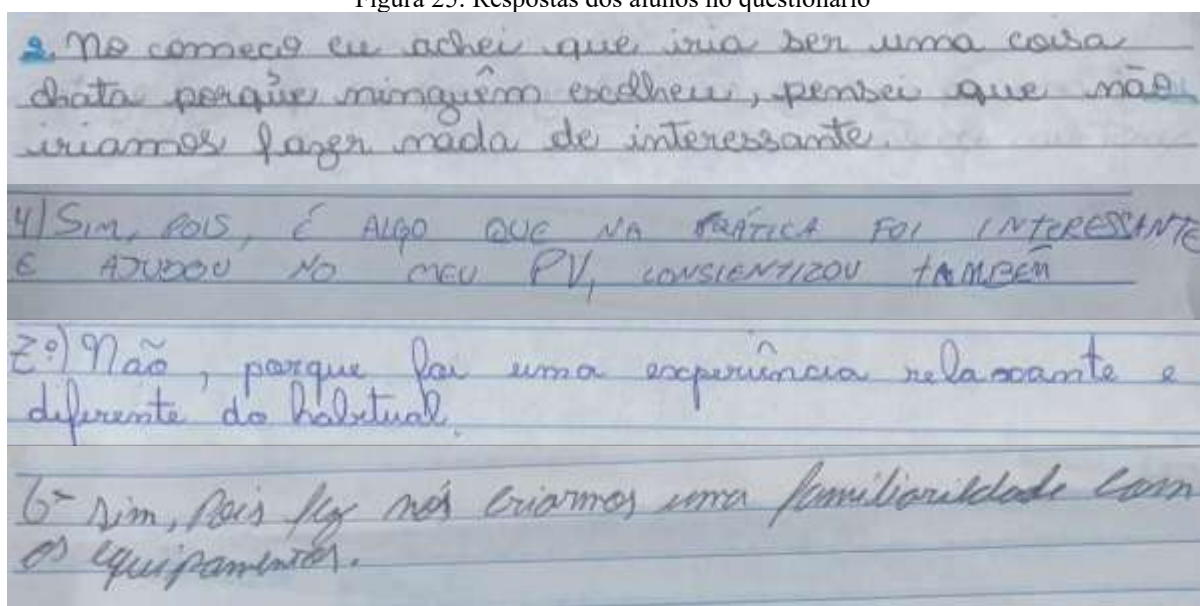 Figura 25: Respostas dos alunos no questionário
2. No começo eu achei que iria ser uma coisa
chata porque ninguém escolheu, pensei que não
iriamos fazer nada de interessante.
4) SIM, POIS, É ALGO QUE NA PRÁTICA FOI INTERESSANTE
E AJUDOU NO MEU PV, CONSIENTIZOU TAMBÉM
7º) Não, porque foi uma experiência relaxante e
diferente do habitual.
6- sim, Pois fez nós criarmos uma familiarildade com
os equipamentos.